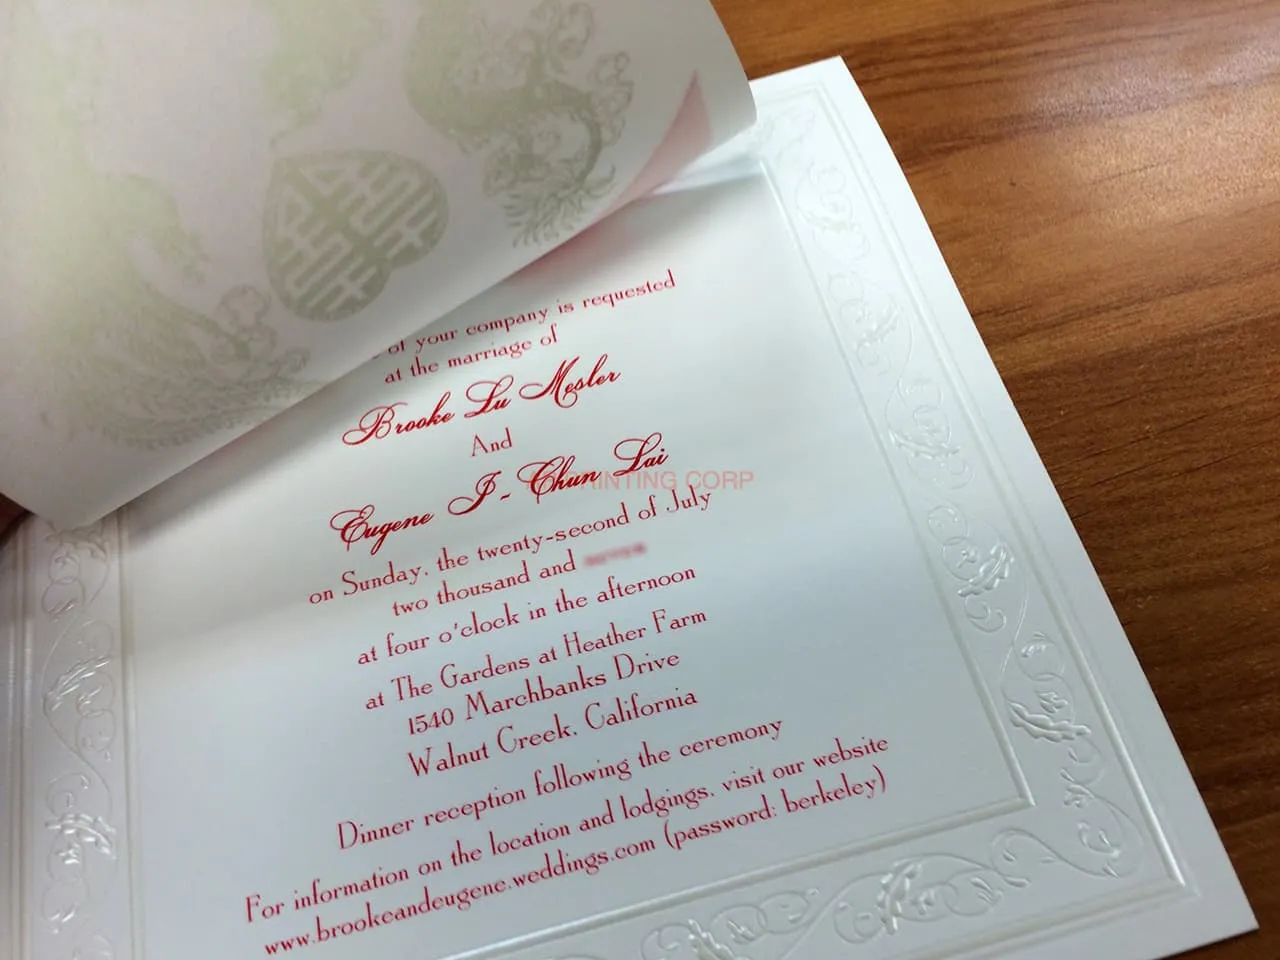 囍
of your company is requested
at the marriage of
Brooke Lu Mesler
And
Eugene I-Chun Lai
PRINTING CORP
on Sunday, the twenty-second of July
two thousand and
at four o'clock in the afternoon
at The Gardens at Heather Farm
1540 Marchbanks Drive
Walnut Creek, California
Dinner reception following the ceremony
For information on the location and lodgings, visit our website
www.brookeandeugene.weddings.com (password: berkeley)